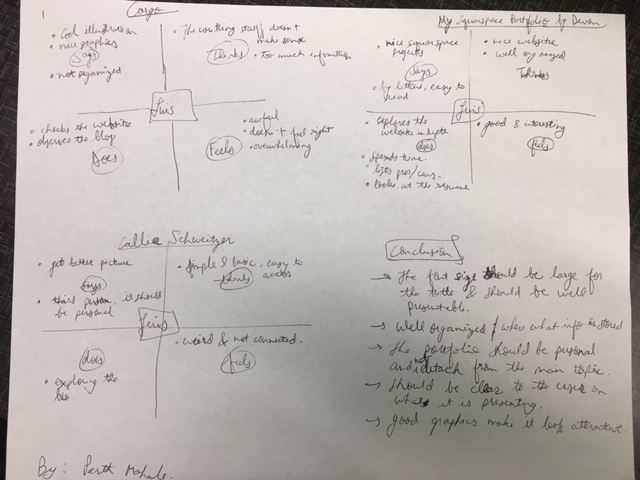 1
Cargo
• Cool illustration
• nice graphics
Says
• not organized
• The working stuff doesn't
make sense
Thinks
• too much information
Luis
• checks the website
• observes the blog
Does
• awful
• doesn't feel right
• overwhelming
Feels
My Squarespace Portfolio by Devan
• nice squarespace
projects
Says
• big letters, easy to
read
• nice website
• well organized
Thinks
Luis
• explores the
website in depth
does
• spends time.
• lists pros/cons.
• looks at the resume
• good & interesting
feels
Callie Schweitzer
• get better picture
says
• third person, it should
be personal
• simple & basic, easy to
access
thinks
Luis
does
• exploring the
bio.
• weird & not connected.
feels
Conclusion
→ The font size should be large for
the title & should be well
presentable.
→ Well organized of where what info is stored
→ The portfolio should be personal
and not detach from the main topic.
→ Should be clear to the users on
what it is presenting.
→ good graphics make it look attractive.
By: Parth